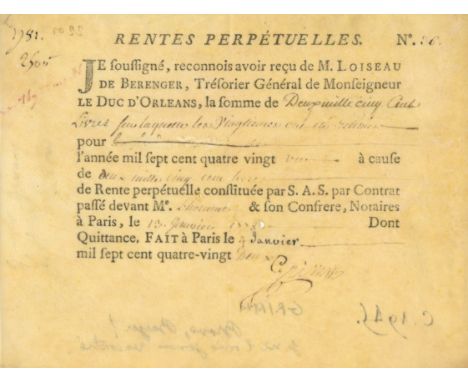 1781.
2500
RENTES PERPÉTUELLES. N°. 36
JE soussigné, reconnois avoir reçu de M. LOISEAU
DE BERENGER, Trésorier Général de Monseigneur
LE DUC D'ORLEANS, la somme de Deux mille cinq Cent
Livres sur laquelle les Vingtiemes ont été retenus
pour
l'année mil sept cent quatre vingt à cause
de deux mille cinq cent livres
de Rente perpétuelle constituée par S. A. S. par Contrat
passé devant Mᵉ. & son Confrere, Notaires
à Paris, le 13 Janvier Dont
Quittance. FAIT à Paris le 9 Janvier
mil sept cent quatre-vingt deux
Grimm
GRIMM
C 1945